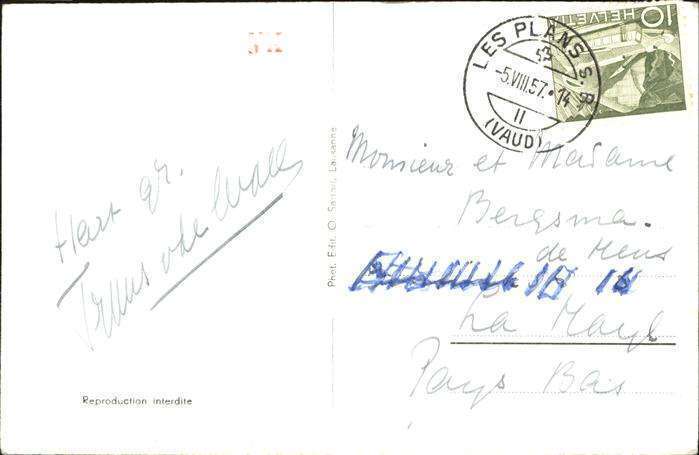 LES PLANS S. B.
-5.VIII.57.-14
II
(VAUD)
10 HELVETIA
Hart. gr.
Truus v.d. Wall
Phot. Edit. O. Sartori, Lausanne
Monsieur et Madame
Bergsma.
de Heus
La Haye
Pays Bas
Reproduction interdite